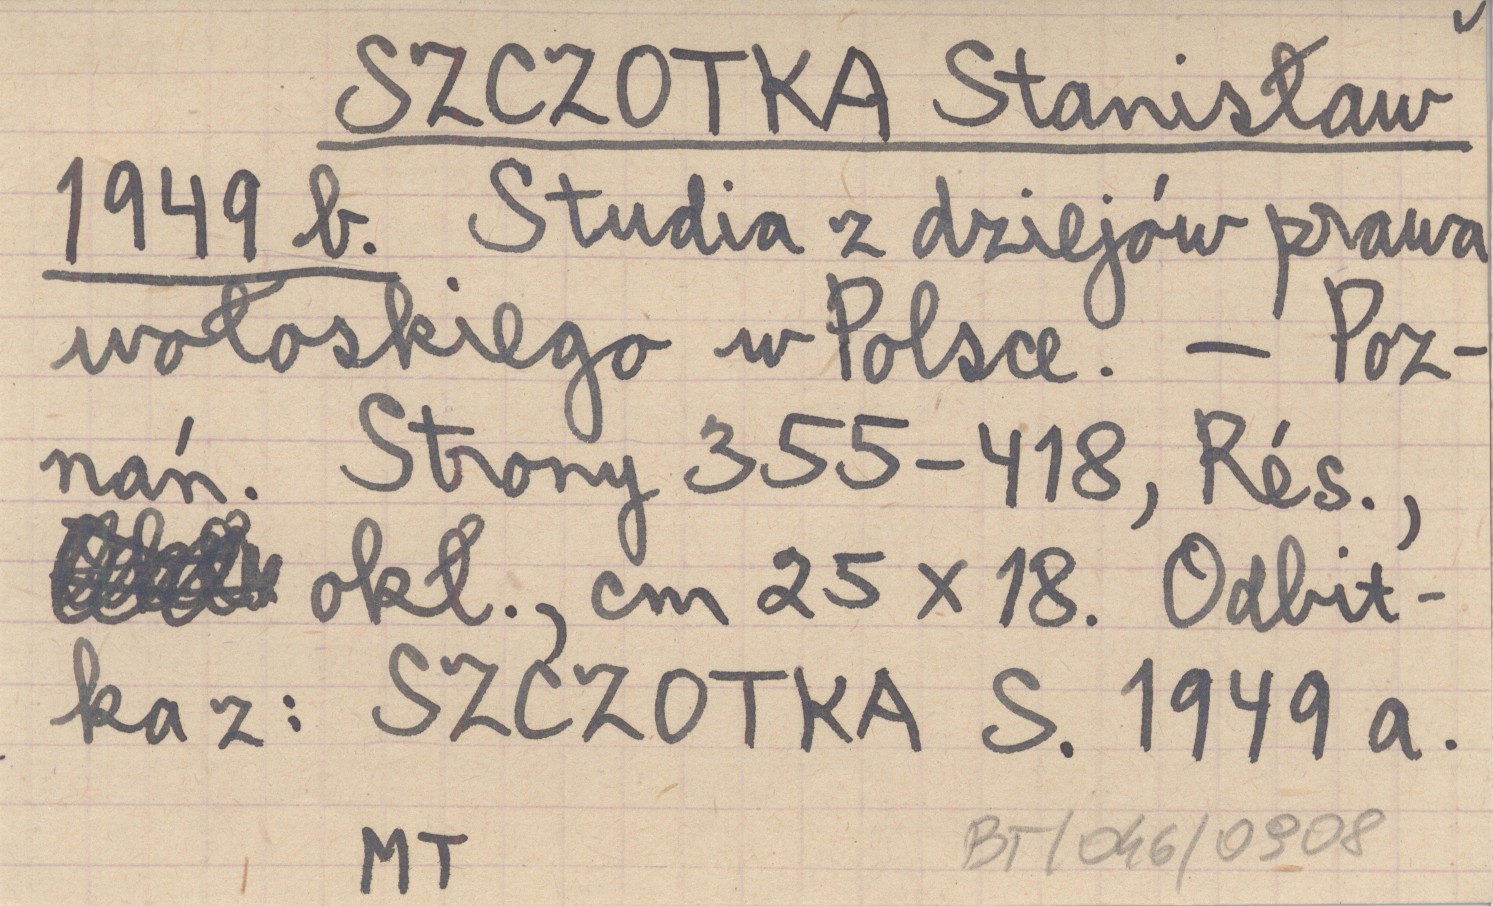 SZCZOTKA Stanisław
1949 b. Studia z dziejów prawa
wołoskiego w Polsce. — Poz-
nań. Strony 355-418, Rés.,
okł., cm 25 x 18. Odbit-
ka z: SZCZOTKA S. 1949 a.
MT
BT/046/0908